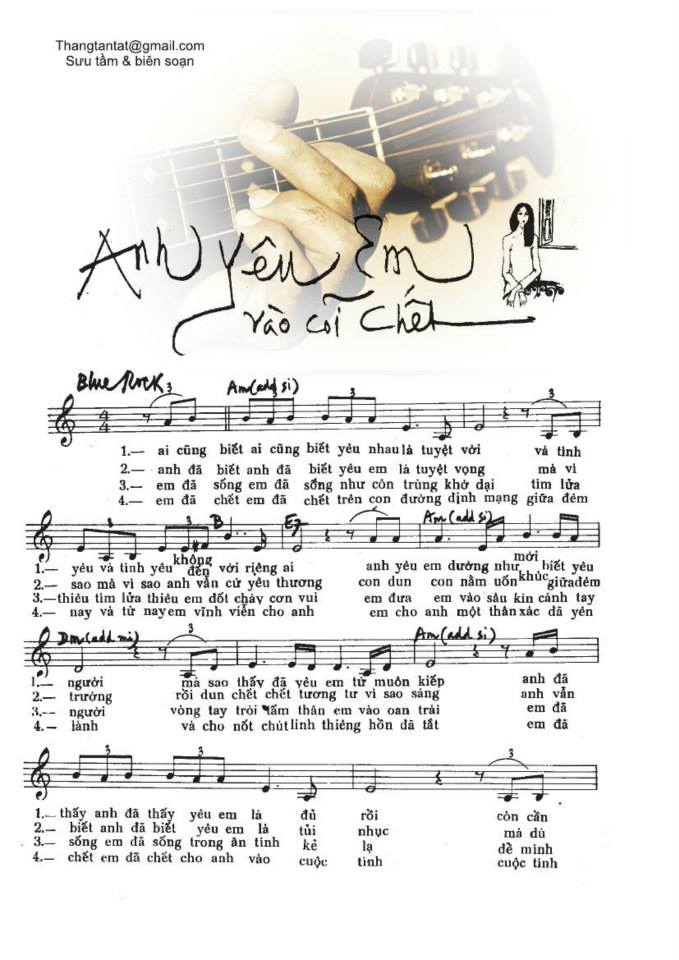 Thangtantat@gmail.com
Sưu tầm & biên soạn
Anh yêu Em
vào cõi chết
Blue Rock 3 Am(add si) 3 3
4
4
1.— ai cũng biết ai cũng biết yêu nhau là tuyệt vời và tình
2.— anh đã biết anh đã biết yêu em là tuyệt vọng mà vì
3.— em đã sống em đã sống như côn trùng khờ dại tìm lửa
4.— em đã chết em đã chết trên con đường định mạng giữa đêm
3 3 B E7 Am(add si)
1.— yêu và tình yêu không đến với riêng ai anh yêu em dường như mới biết yêu
2.— sao mà vì sao anh vẫn cứ yêu thương con dun con nằm uốn khúc giữa đêm
3.— thiêu tìm lửa thiêu em đốt cháy cơn vui em đưa em vào sâu kín cánh tay
4.— nay và từ nay em vĩnh viễn cho anh em cho anh một thân xác đã yên
Dm(add mi) 3 Am(add si) 3
1.— người mà sao thấy đã yêu em từ muôn kiếp anh đã
2.— trường rồi dun chết chết tương tư vì sao sáng anh vẫn
3.— người vòng tay trói tấm thân em vào oan trái em đã
4.— lành và cho nốt chút linh thiêng hồn đã tắt em đã
3 3 3
1.— thấy anh đã thấy yêu em là đủ rồi còn cần
2.— biết anh đã biết yêu em là tủi nhục mà dù
3.— sống em đã sống trong ân tình kẻ lạ để mình
4.— chết em đã chết cho anh vào cuộc tình cuộc tình